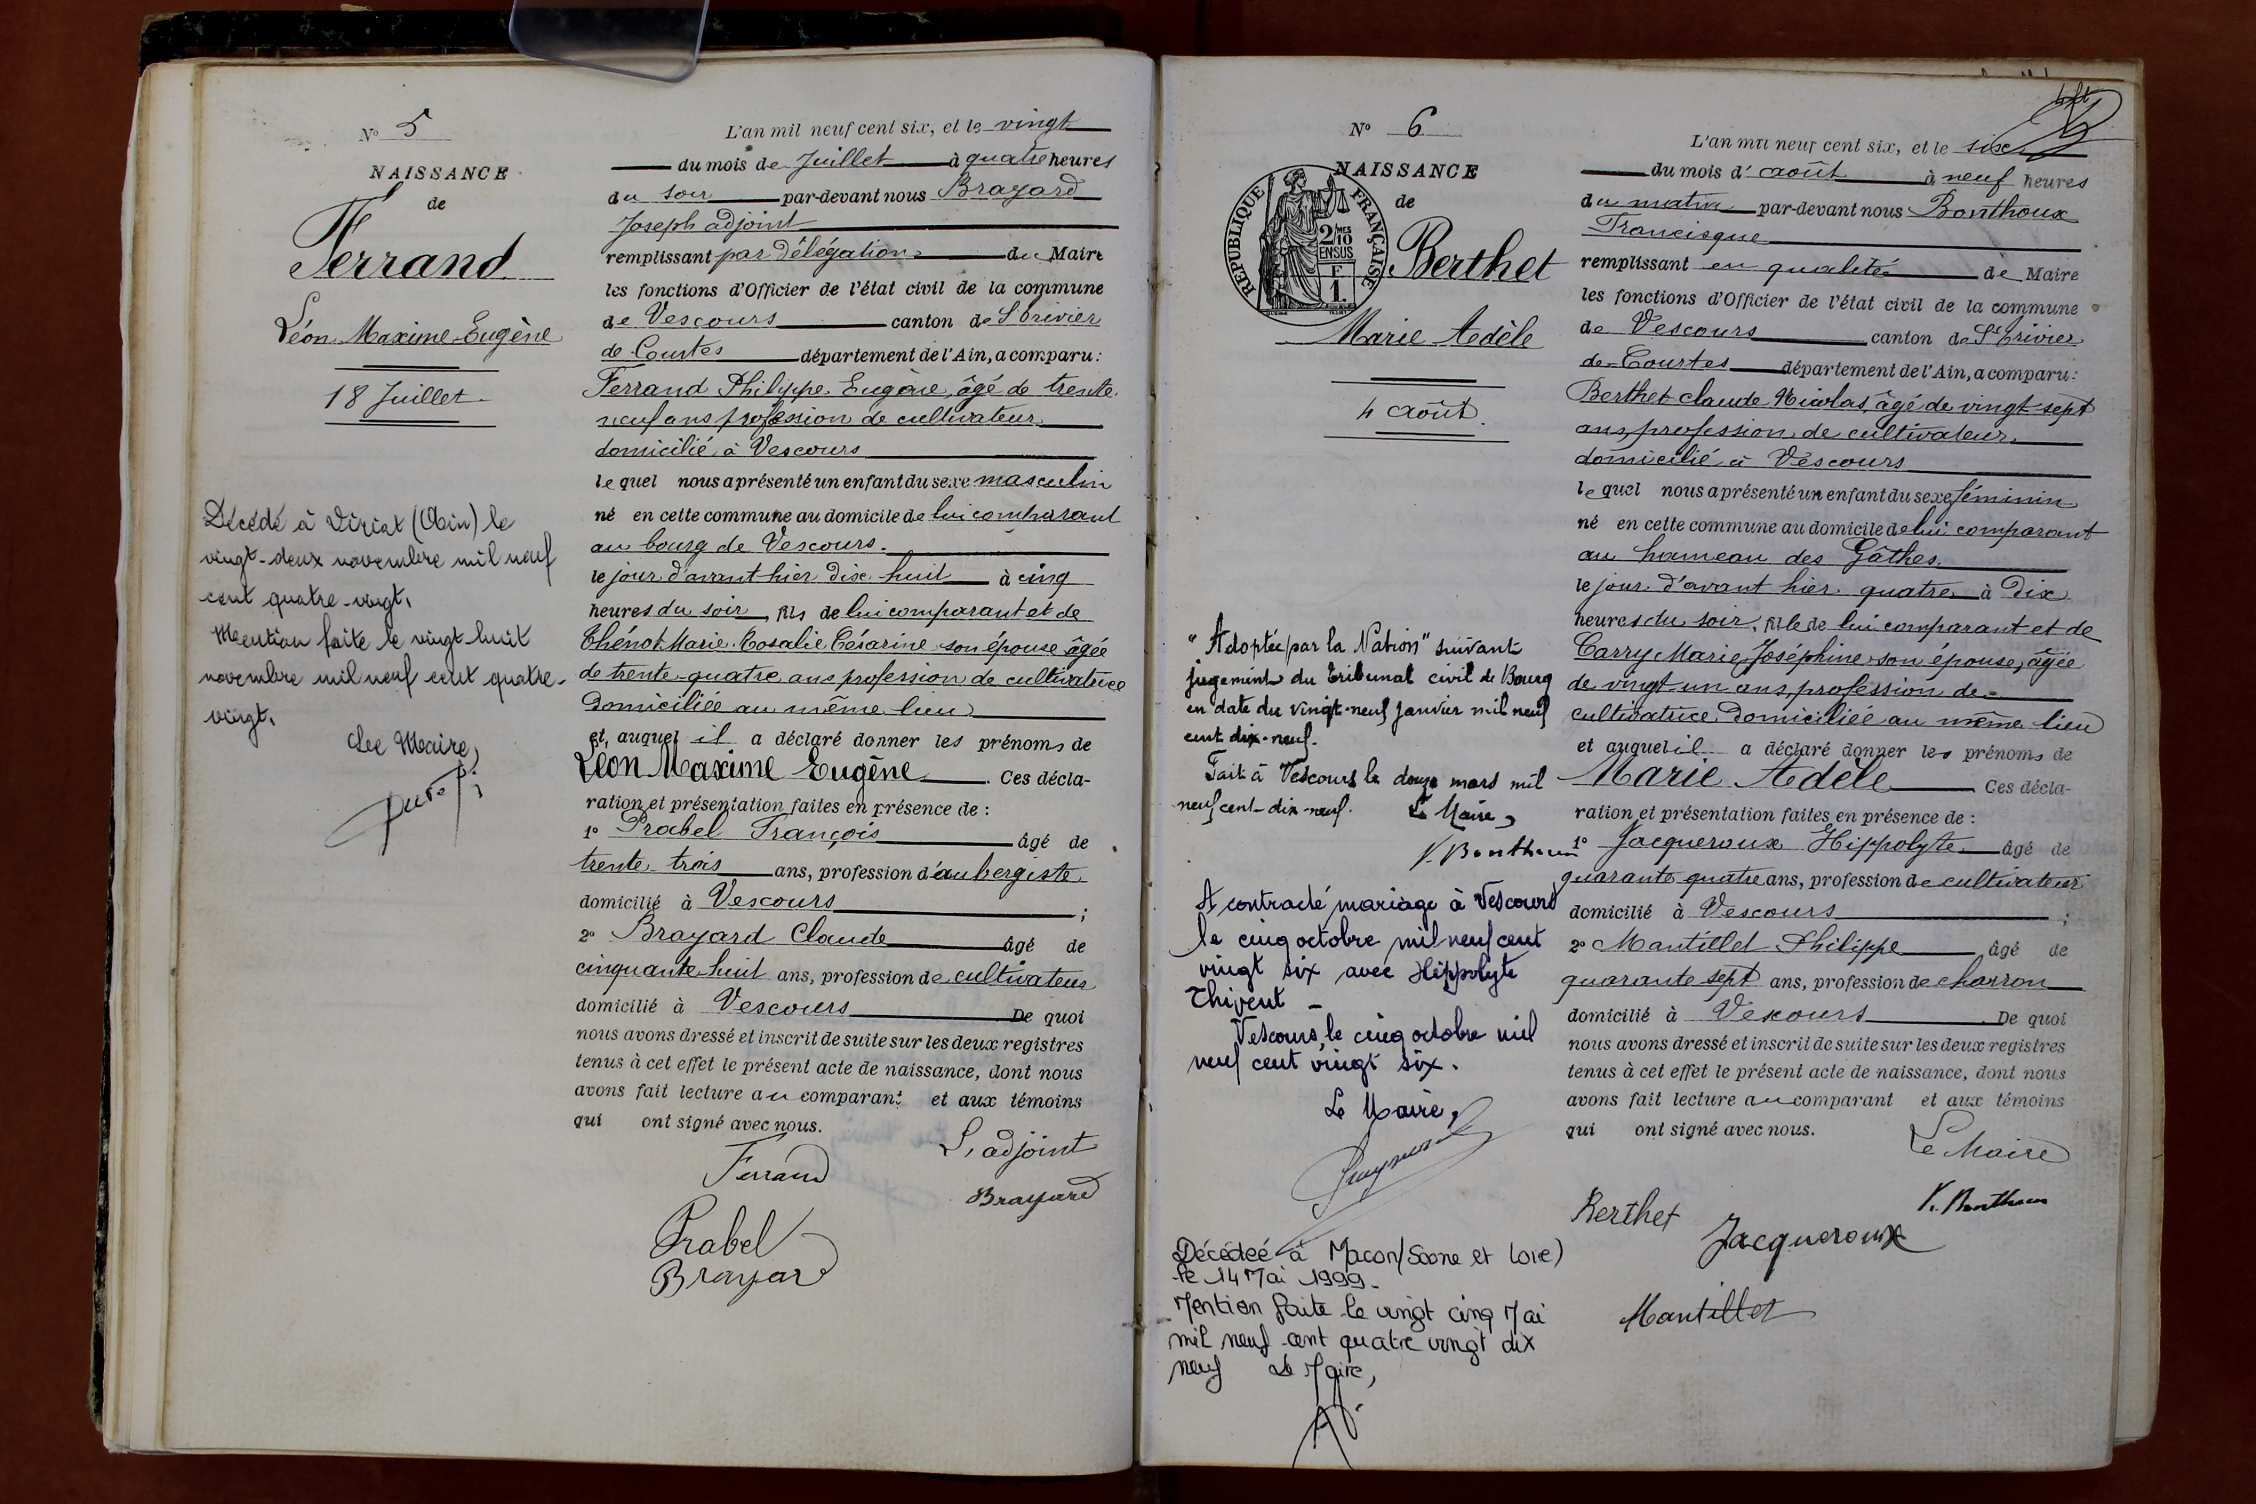 N° 5
NAISSANCE
de
Ferrand
Léon Maxime Eugène
18 Juillet
Décédé à Viriat (Ain) le
vingt-deux novembre mil neuf
cent quatre-vingt.
Mention faite le vingt huit
novembre mil neuf cent quatre-
vingt.
Le Maire,
L'an mil neuf cent six, et le vingt
du mois de Juillet à quatre heures
du soir par-devant nous Brayard
Joseph adjoint
remplissant par délégation du Maire
les fonctions d'Officier de l'état civil de la commune
de Vescours canton de St Trivier
de Courtes département de l'Ain, a comparu :
Ferrand Philippe Eugène, âgé de trente
neuf ans profession de cultivateur
domicilié à Vescours
lequel nous a présenté un enfant du sexe masculin
né en cette commune au domicile de lui comparant
au bourg de Vescours.
le jour d'avant hier dix huit à cinq
heures du soir, fils de lui comparant et de
Thénot Marie Rosalie Césarine son épouse âgée
de trente-quatre ans profession de cultivatrice
Domiciliée au même lieu
et, auquel il a déclaré donner les prénoms de
Léon Maxime Eugène. Ces décla-
ration et présentation faites en présence de :
1° Prabel François âgé de
trente trois ans, profession d'aubergiste
domicilié à Vescours ;
2° Brayard Claude âgé de
cinquante huit ans, profession de cultivateur
domicilié à Vescours De quoi
nous avons dressé et inscrit de suite sur les deux registres
tenus à cet effet le présent acte de naissance, dont nous
avons fait lecture au comparant et aux témoins
qui ont signé avec nous.
L'adjoint
Ferrand
Brayard
Prabel
Brayard
N° 6
NAISSANCE
de
REPUBLIQUE FRANÇAISE
2/10 MES
EN SUS
F
1
Berthet
Marie Adèle
4 août.
"Adoptée par la Nation" suivant
jugement du Tribunal civil de Bourg
en date du vingt-neuf janvier mil neuf
cent dix-neuf.
Fait à Vescours le douze mars mil
neuf cent-dix-neuf. Le Maire,
F. Bonthoux
A contracté mariage à Vescours
le cinq octobre mil neuf cent
vingt six avec Hippolyte
Thivent —
Vescours, le cinq octobre mil
neuf cent vingt six.
Le Maire,
Décédeé à Macon (Saone et Loire)
le 14 Mai 1999.
Mention faite le vingt cinq Mai
mil neuf cent quatre vingt dix
neuf Le Maire,
L'an mil neuf cent six, et le six
du mois d'août à neuf heures
du matin par-devant nous Bonthoux
Francisque
remplissant en qualité de Maire
les fonctions d'Officier de l'état civil de la commune
de Vescours canton de St Trivier
de Courtes département de l'Ain, a comparu :
Berthet claude Nicolas, âgé de vingt-sept
ans, profession de cultivateur
domicilié à Vescours
lequel nous a présenté un enfant du sexe féminin
né en cette commune au domicile de lui comparant
au hameau des Gâthes.
le jour d'avant hier quatre à Dix
heures du soir, fille de lui comparant et de
Carry Marie Joséphine son épouse, âgée
de vingt un ans, profession de
cultivatrice, Domiciliée au même lieu
et auquel il a déclaré donner les prénoms de
Marie Adèle Ces décla-
ration et présentation faites en présence de :
1° Jacqueroux Hippolyte âgé de
quarante quatre ans, profession de cultivateur
domicilié à Vescours ;
2° Mantillet Philippe âgé de
quarante sept ans, profession de charron
domicilié à Vescours De quoi
nous avons dressé et inscrit de suite sur les deux registres
tenus à cet effet le présent acte de naissance, dont nous
avons fait lecture au comparant et aux témoins
qui ont signé avec nous.
Le Maire
F. Bonthoux
Berthet
Jacqueroux
Mantillet